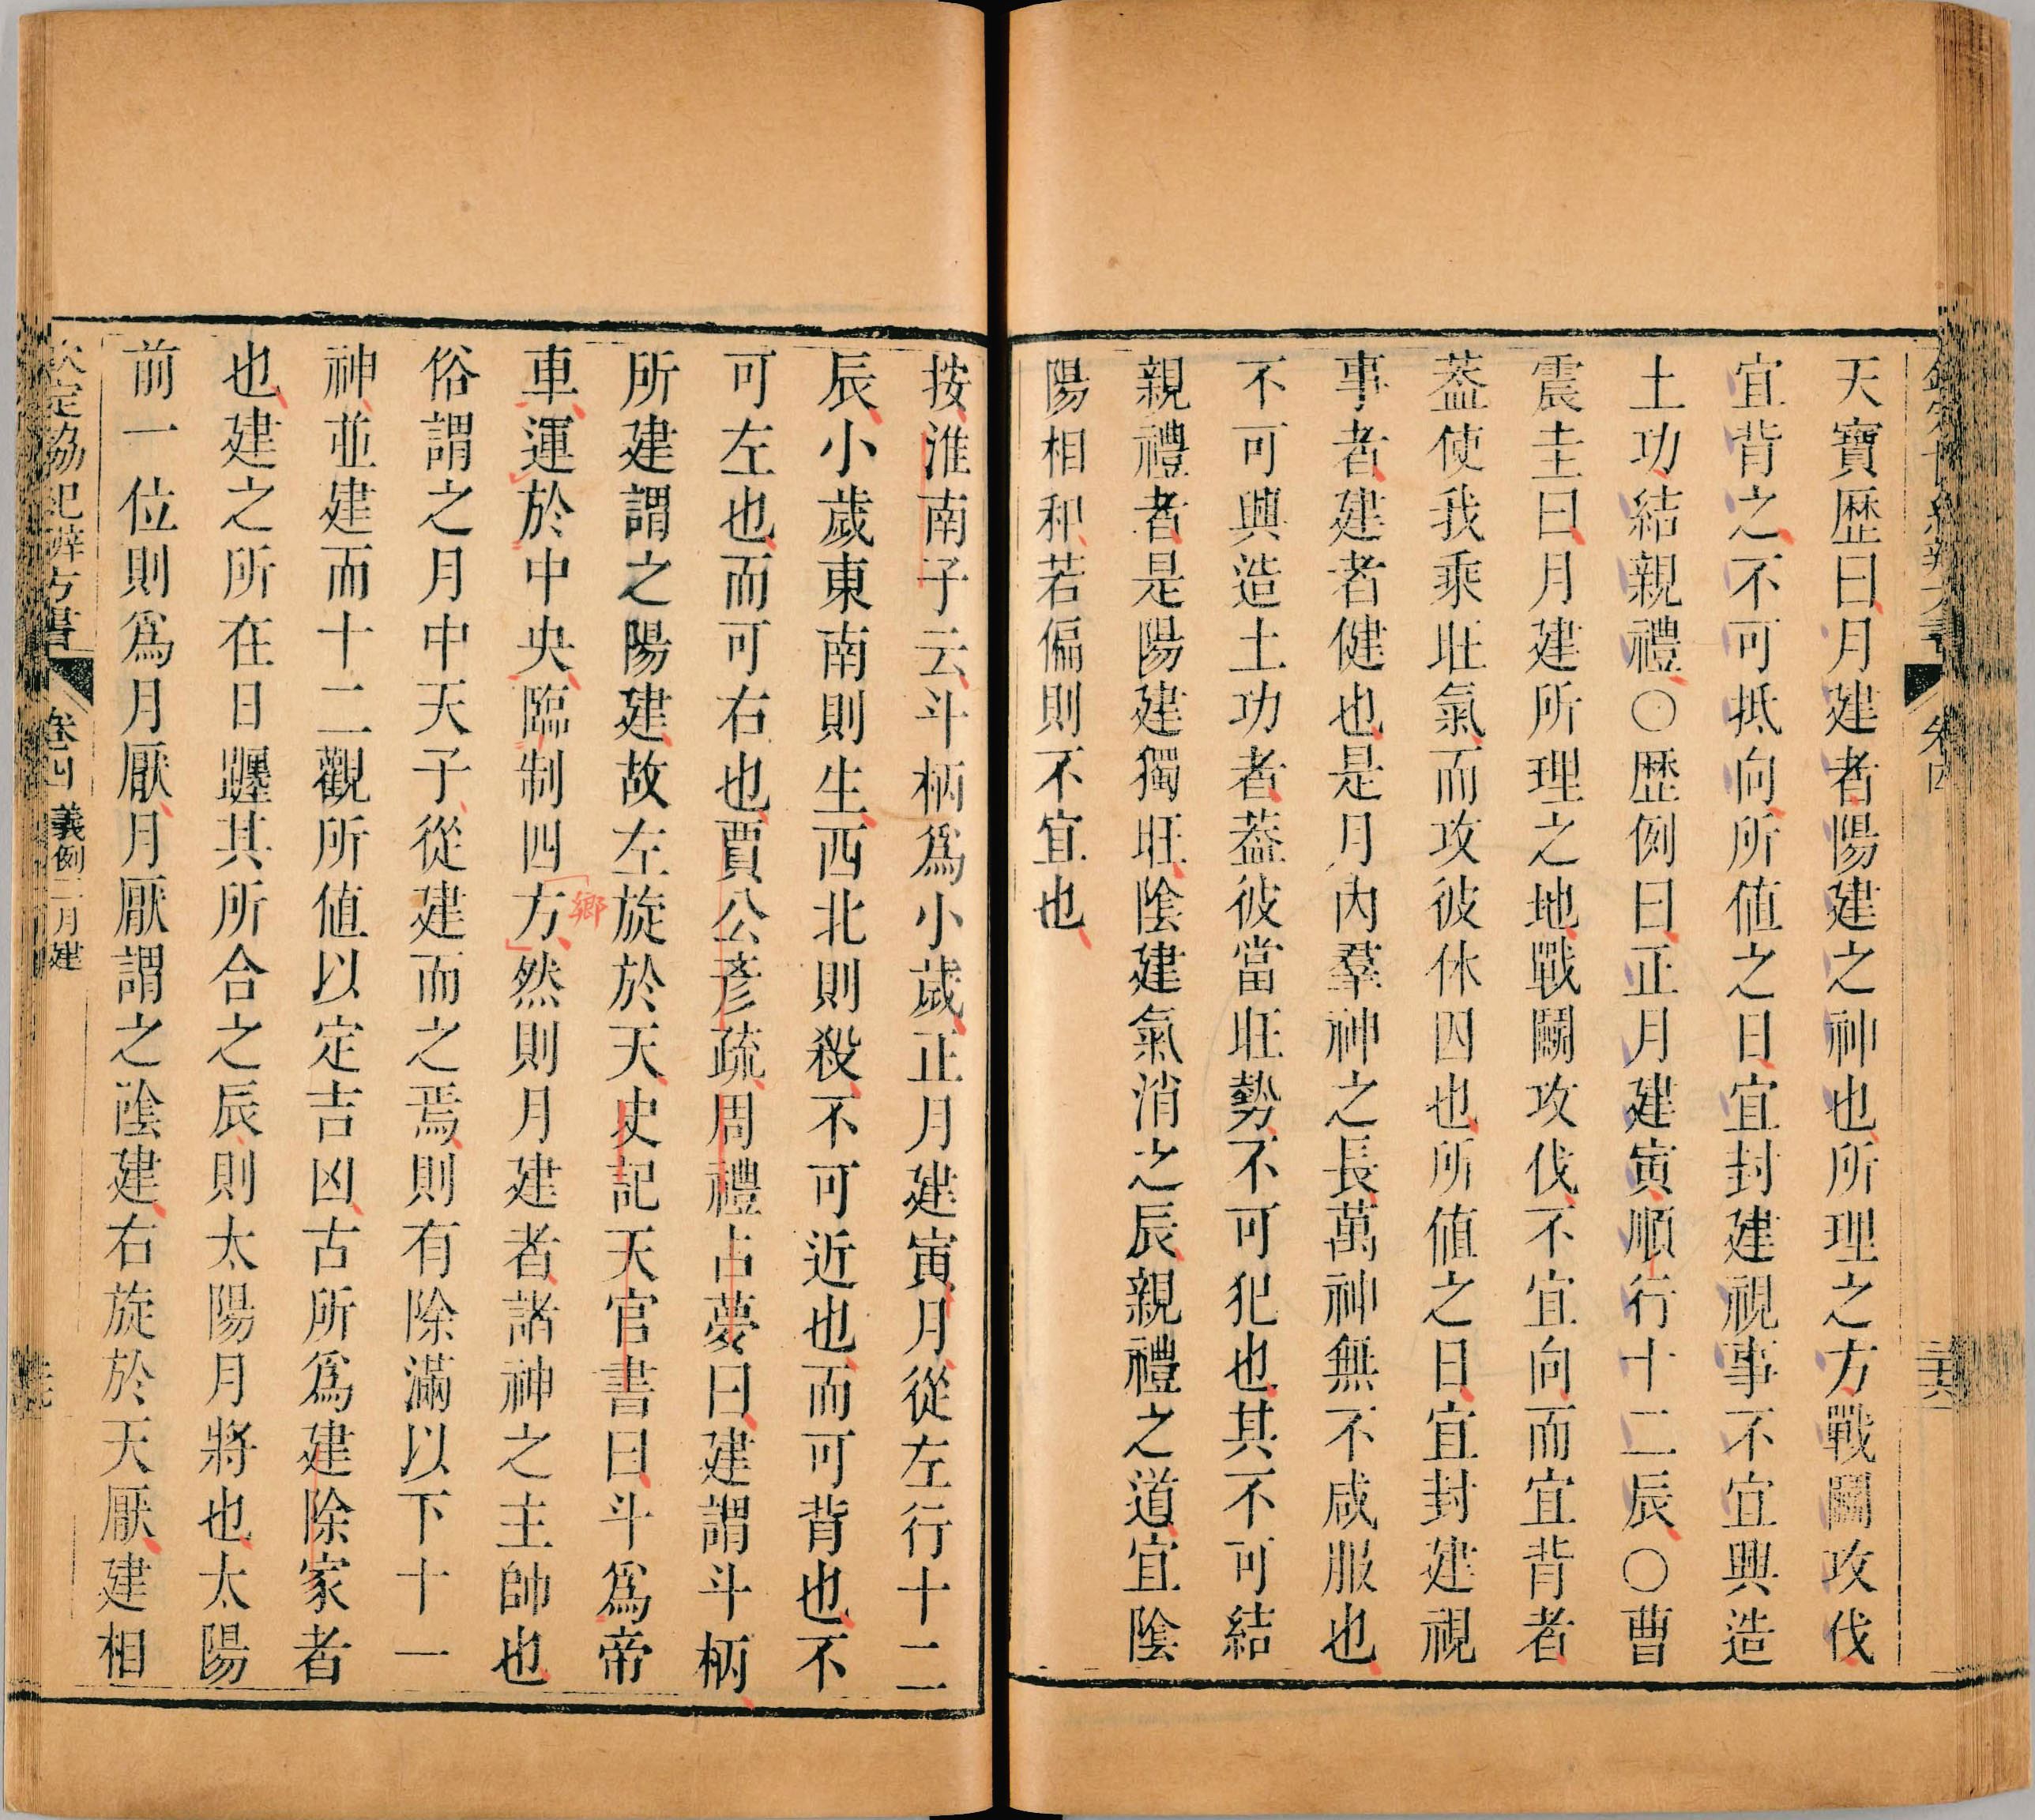 天寶歴曰月建者陽建之神也所理之方戰鬬攻伐
宜背之不可抵向所值之日宜封建視事不宜興造
土功結親禮○歴例曰正月建寅順行十二辰○曹
震圭曰月建所理之地戰鬬攻伐不宜向而宜背者
葢使我乘旺氣而攻彼休囚也所值之日宜封建視
事者建者健也是月內羣神之長萬神無不咸服也
不可興造土功者葢彼當旺勢不可犯也其不可結
親禮者是陽建獨旺陰建氣消之辰親禮之道宜陰
陽相和若偏則不宜也
按淮南子云斗柄爲小歲正月建寅月從左行十二
辰小歲東南則生西北則殺不可近也而可背也不
可左也而可右也賈公彥疏周禮占夢曰建謂斗柄
所建謂之陽建故左旋於天史記天官書曰斗爲帝
車運於中央臨制四方然則月建者諸神之主帥也
鄉
俗謂之月中天子從建而之焉則有除滿以下十一
神並建而十二觀所值以定吉凶古所爲建除家者
也建之所在日躔其所合之辰則太陽月將也太陽
前一位則爲月厭月厭謂之陰建右旋於天厭建相
欽定協紀辨方書 卷四 義例二月建